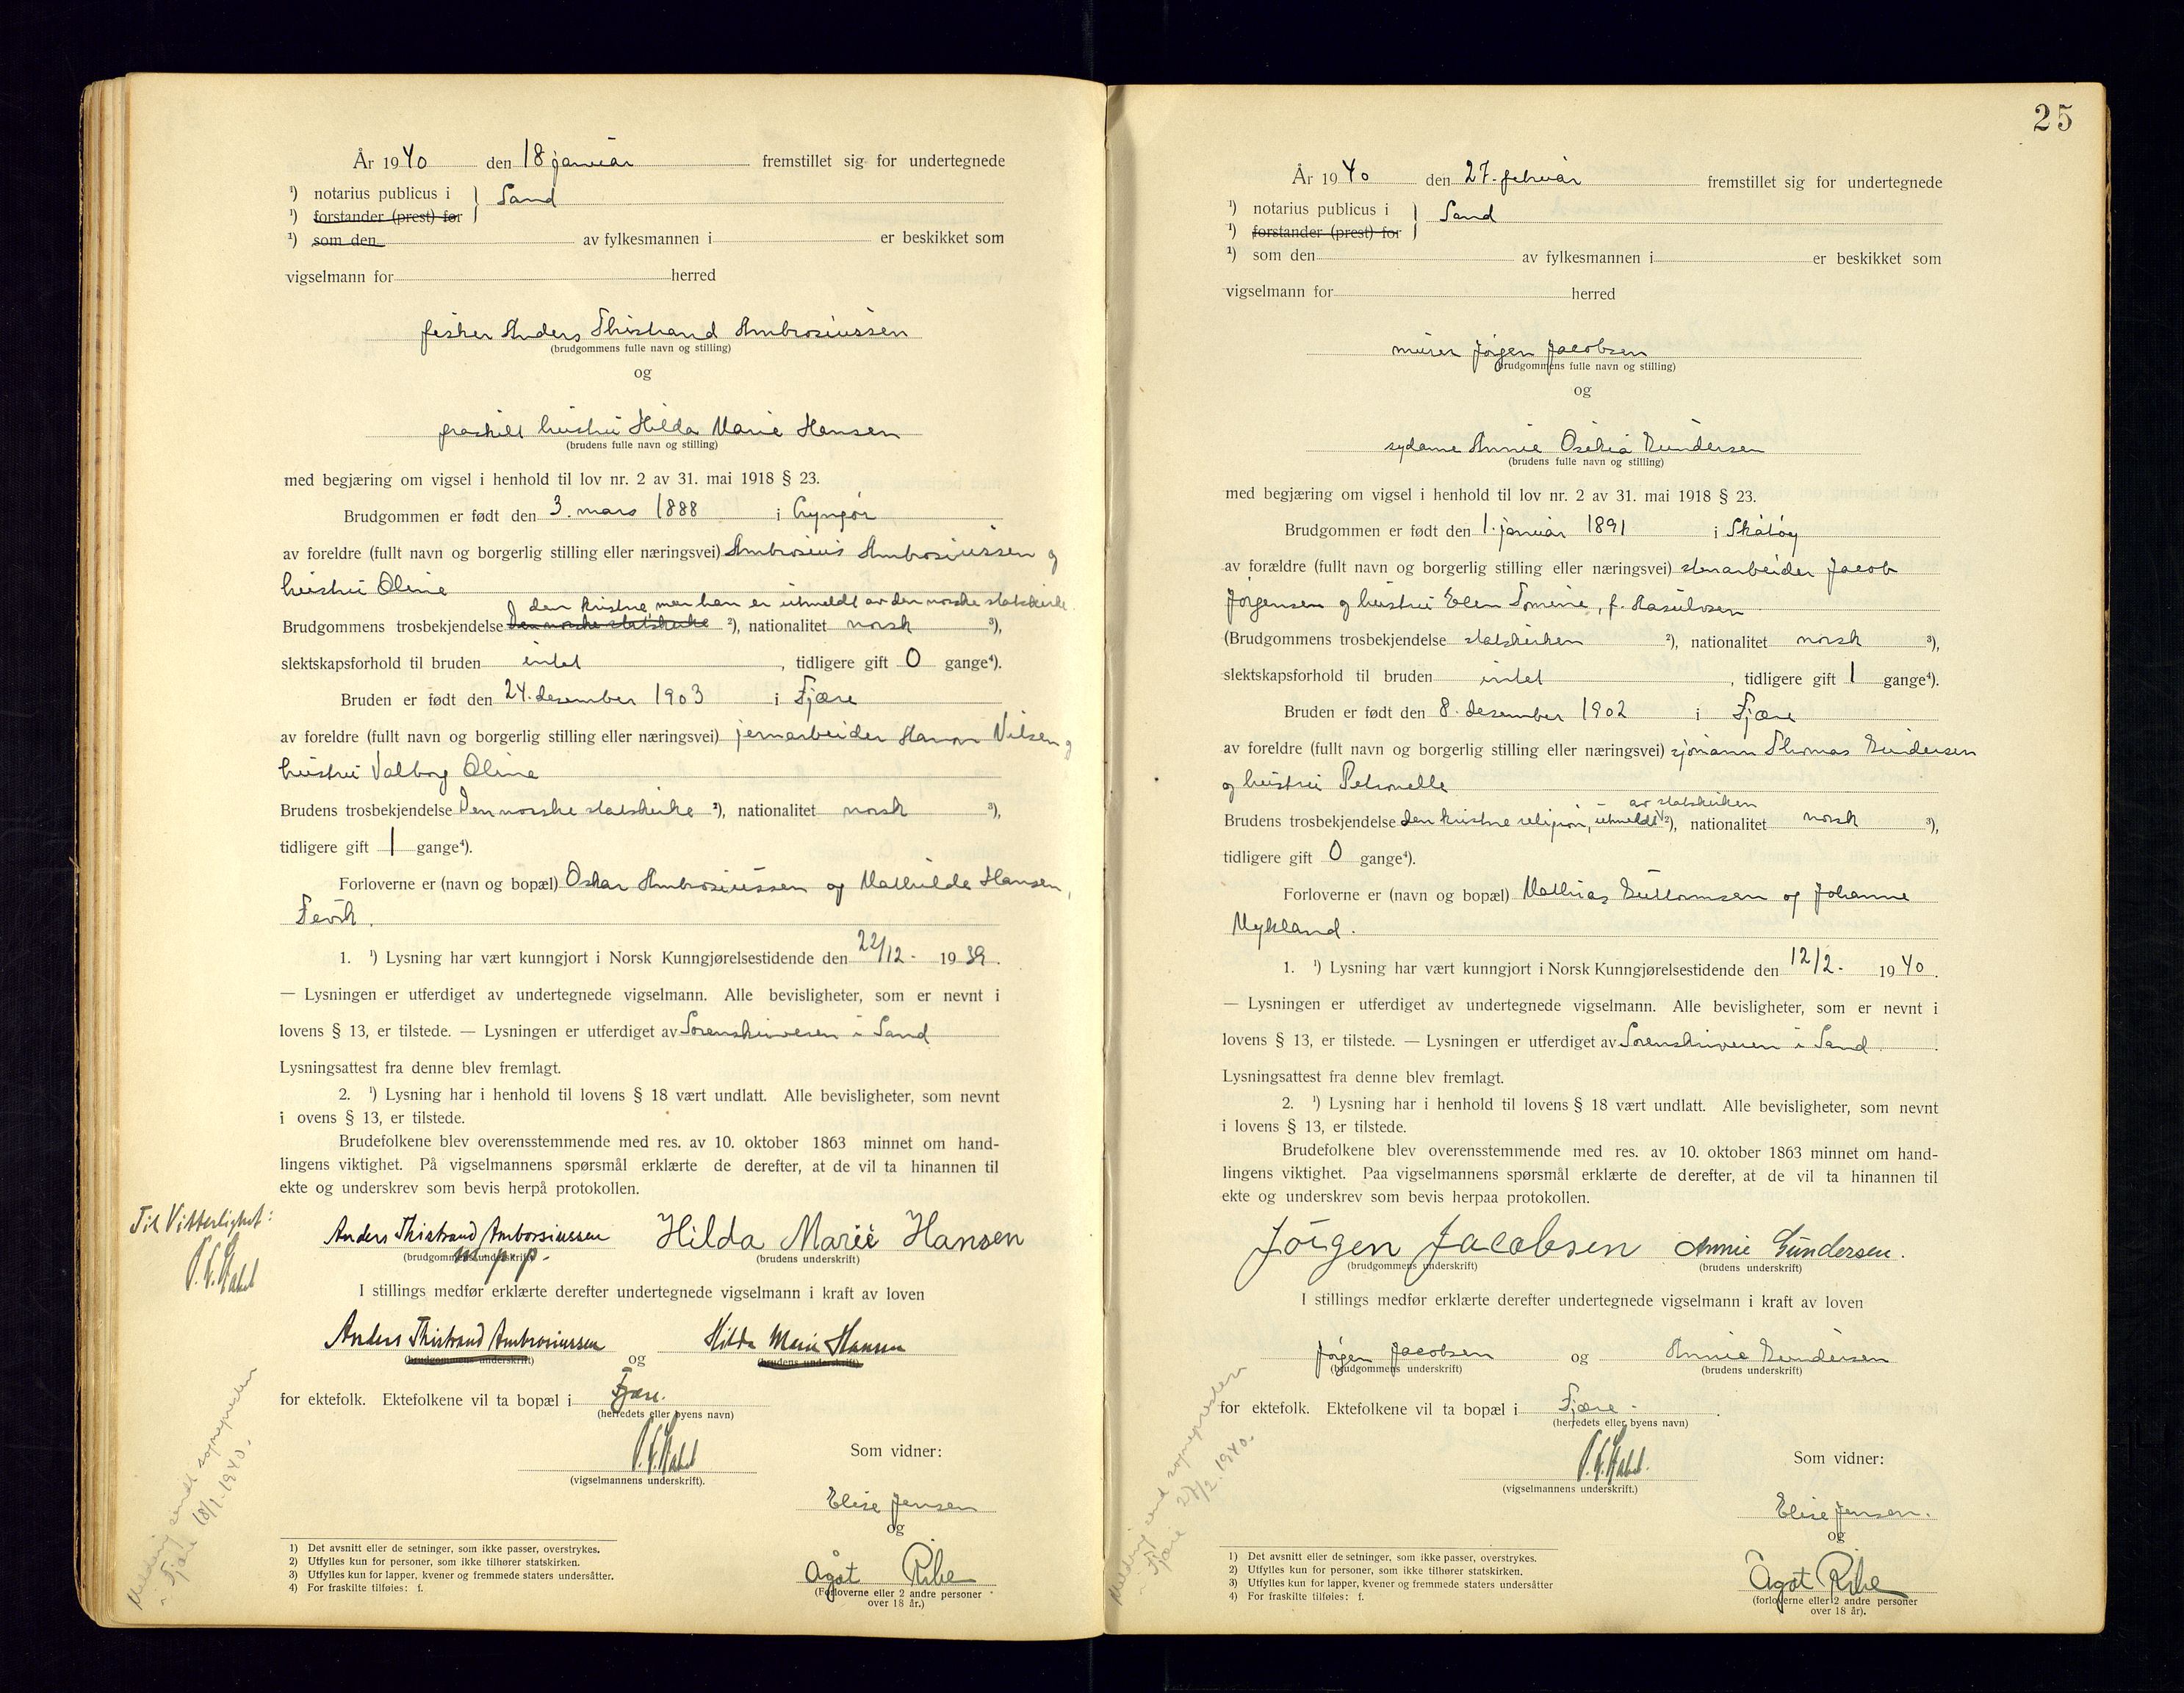 År 1940 den 18 januar fremstillet sig for undertegnede
¹) notarius publicus i } Sand
¹) forstander (prest) for
¹) som den av fylkesmannen i er beskikket som
vigselmann for herred
fisker Anders Thistrand Ambrosiussen
(brudgommens fulle navn og stilling)
og
fraskilt hustru Hilda Marie Hansen
(brudens fulle navn og stilling)
med begjæring om vigsel i henhold til lov nr. 2 av 31. mai 1918 § 23.
Brudgommen er født den 3. mars 1888 i Lyngør
av foreldre (fullt navn og borgerlig stilling eller næringsvei) Ambrosius Ambrosiussen og
hustru Oline
den kristne, men han er utmeldt av den norske statskirke
Brudgommens trosbekjendelse Den norske statskirke ²), nationalitet norsk ³),
slektskapsforhold til bruden intet, tidligere gift 0 gange⁴).
Bruden er født den 24. desember 1903 i Fjære
av foreldre (fullt navn og borgerlig stilling eller næringsvei) jernarbeider Hans Nilsen og
hustru Valborg Oline
Brudens trosbekjendelse Den norske statskirke ²), nationalitet norsk ³),
tidligere gift 1 gange⁴).
Forloverne er (navn og bopæl) Oskar Ambrosiussen og Mathilde Hansen,
Fevik.
1. ¹) Lysning har vært kunngjort i Norsk Kunngjørelsestidende den 22/12 - 1939.
— Lysningen er utferdiget av undertegnede vigselmann. Alle bevisligheter, som er nevnt i
lovens § 13, er tilstede. — Lysningen er utferdiget av Sorenskriveren i Sand
Lysningsattest fra denne blev fremlagt.
2. ¹) Lysning har i henhold til lovens § 18 vært undlatt. Alle bevisligheter, som nevnt
i ovens § 13, er tilstede.
Brudefolkene blev overensstemmende med res. av 10. oktober 1863 minnet om hand-
lingens viktighet. På vigselmannens spørsmål erklærte de derefter, at de vil ta hinannen til
ekte og underskrev som bevis herpå protokollen.
Til Vitterlighet:
Anders Thistrand Amborsiussen Hilda Marie Hansen
(brudgommens underskrift) (brudens underskrift)
m p p.
I stillings medfør erklærte derefter undertegnede vigselmann i kraft av loven
Anders Thistrand Ambrosiussen og Hilda Marie Hansen
(brudgommens underskrift) (brudens underskrift)
for ektefolk. Ektefolkene vil ta bopæl i Fjære.
(herredets eller byens navn)
Som vidner:
(vigselmannens underskrift).
Elise Jensen
og
Ågot Ribe
(Forloverne eller 2 andre personer
over 18 år.)
Melding sendt sognepresten
i Fjære 18/1. 1940.
1) Det avsnitt eller de setninger, som ikke passer, overstrykes.
2) Utfylles kun for personer, som ikke tilhører statskirken.
3) Utfylles kun for lapper, kvener og fremmede staters undersåtter.
4) For fraskilte tilføies: f.
25
År 1940 den 27. februar fremstillet sig for undertegnede
¹) notarius publicus i } Sand
¹) forstander (prest) for
¹) som den av fylkesmannen i er beskikket som
vigselmann for herred
murer Jørgen Jacobsen
(brudgommens fulle navn og stilling)
og
sydame Annie Osekia Gundersen
(brudens fulle navn og stilling)
med begjæring om vigsel i henhold til lov nr. 2 av 31. mai 1918 § 23.
Brudgommen er født den 1. januar 1891 i Skåtøy
av forældre (fullt navn og borgerlig stilling eller næringsvei) stenarbeider Jacob
Jørgensen og hustru Elen Tomine, f.
(Brudgommens trosbekjendelse statskirken ²), nationalitet norsk ³),
slektskapsforhold til bruden intet, tidligere gift 1 gange⁴).
Bruden er født den 8. desember 1902 i Fjære
av foreldre (fullt navn og borgerlig stilling eller næringsvei) sjømann Thomas Gundersen
og hustru Petronelle
av statskirken
Brudens trosbekjendelse den kristne religion, utmeldt ²), nationalitet norsk ³),
tidligere gift 0 gange⁴).
Forloverne er (navn og bopæl) Mathias Guttormsen og Johanne
Mykland.
1. ¹) Lysning har vært kunngjort i Norsk Kunngjørelsestidende den 12/2. 1940.
— Lysningen er utferdiget av undertegnede vigselmann. Alle bevisligheter, som er nevnt i
lovens § 13, er tilstede. — Lysningen er utferdiget av Sorenskriveren i Sand.
Lysningsattest fra denne blev fremlagt.
2. ¹) Lysning har i henhold til lovens § 18 vært undlatt. Alle bevisligheter, som nevnt
i lovens § 13, er tilstede.
Brudefolkene blev overensstemmende med res. av 10. oktober 1863 minnet om hand-
lingens viktighet. Paa vigselmannens spørsmål erklærte de derefter, at de vil ta hinannen til
ekte og underskrev som bevis herpaa protokollen.
Jørgen Jacobsen Annie Gundersen.
(brudgommens underskrift) (brudens underskrift)
I stillings medfør erklærte derefter undertegnede vigselmann i kraft av loven
Jørgen Jacobsen og Annie Gundersen
(brudgommens underskrift) (brudens underskrift)
for ektefolk. Ektefolkene vil ta bopæl i Fjære.
(herredets eller byens navn)
Som vidner:
(vigselmannens underskrift.)
Elise Jensen.
og
Ågot Ribe
(forloverne eller 2 andre personer
over 18 år).
Melding send sognepresten
i Fjære 27/2. 1940.
1) Det avsnitt eller de setninger, som ikke passer, overstrykes.
2) Utfylles kun for personer, som ikke tilhører statskirken.
3) Utfylles kun for lapper, kvener og fremmede staters undersåtter
4) For fraskilte tilføies: f.